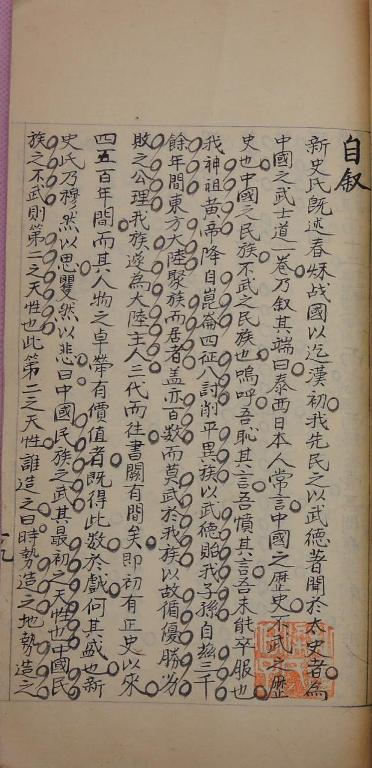 自叙
新史氏既述春秌战國以迄漢初我先民之以武德著聞於太史者為
中國之武士道一卷乃叙其端曰泰西日本人常言中國之歷史不武之歷
史也中國之民族不武之民族也嗚呼吾恥其言吾憤其言吾未能卒服也
我神祖黃帝降自崑崙四征八討削平異族以武德貽我子孫自兹三千
餘年間東方大陸聚族而居者盖亦百數而莫武於我族以故循優勝劣
敗之公理我族遂為大陸主人三代而往書闕有間矣即初有正史以來
四五百年間而其人物之卓犖有價值者既得此数於戲何其盛也新
史氏乃穆然以思矍然以悲曰中國民族之武其最初之天性也中國民
族之不武則第二之天性也此第二之天性誰造之曰時勢造之地勢造之